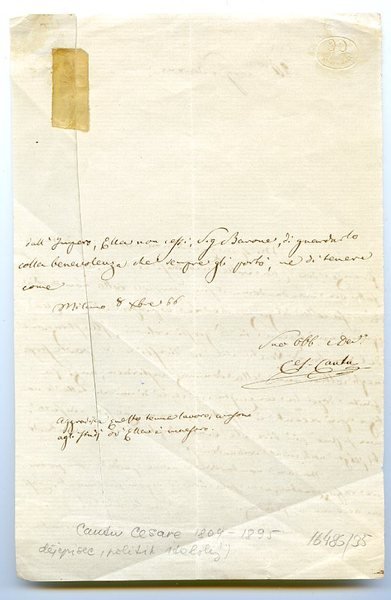 dall'Impero, Ella non cessi, Sig Barone, di guardarlo
colla benevolenza che sempre gli portò, nè di tenere
come
Milano 8 Xbre 66
Suo obb e Dev
Ces. Cantù
questo tenue lavoro,
agli studj di Ella è maestro.
Cantu Cesare 1804-1895
dějepisec, politik
16486/35